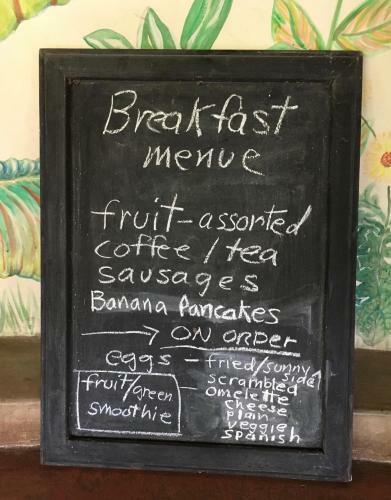 Breakfast
menue
fruit-assorted
coffee/tea
sausages
Banana Pancakes
→ ON ORDER
eggs - fried/sunny side ↑
scrambled
omelette
cheese
plain
veggie
spanish
fruit/green
smoothie